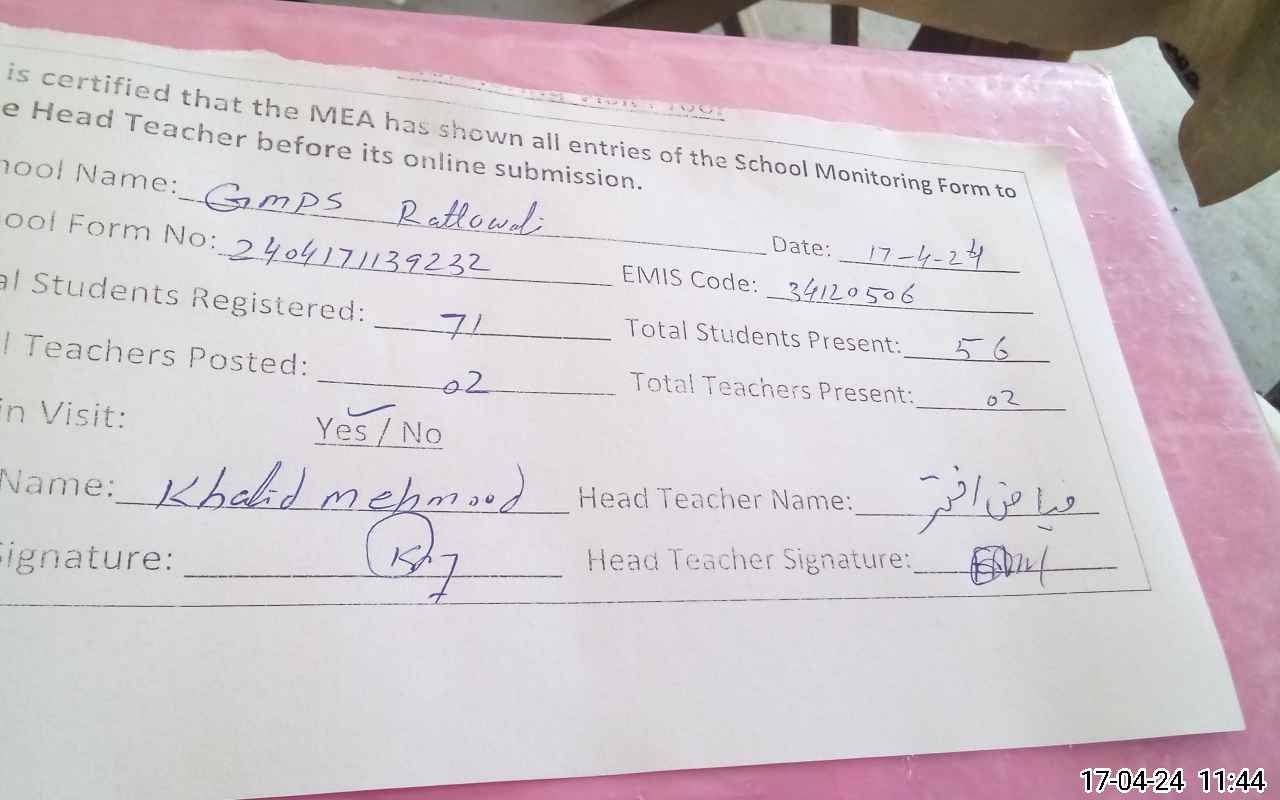 is certified that the MEA has shown all entries of the School Monitoring Form to
e Head Teacher before its online submission.
hool Name: GMPS Ratlowali Date: 17-4-24
ool Form No: 2404171139232 EMIS Code: 34120506
al Students Registered: 71 Total Students Present: 56
l Teachers Posted: 02 Total Teachers Present: 02
in Visit: Yes / No
Name: Khalid mehmood Head Teacher Name: فیاض اختر
Signature: Head Teacher Signature:
17-04-24 11:44